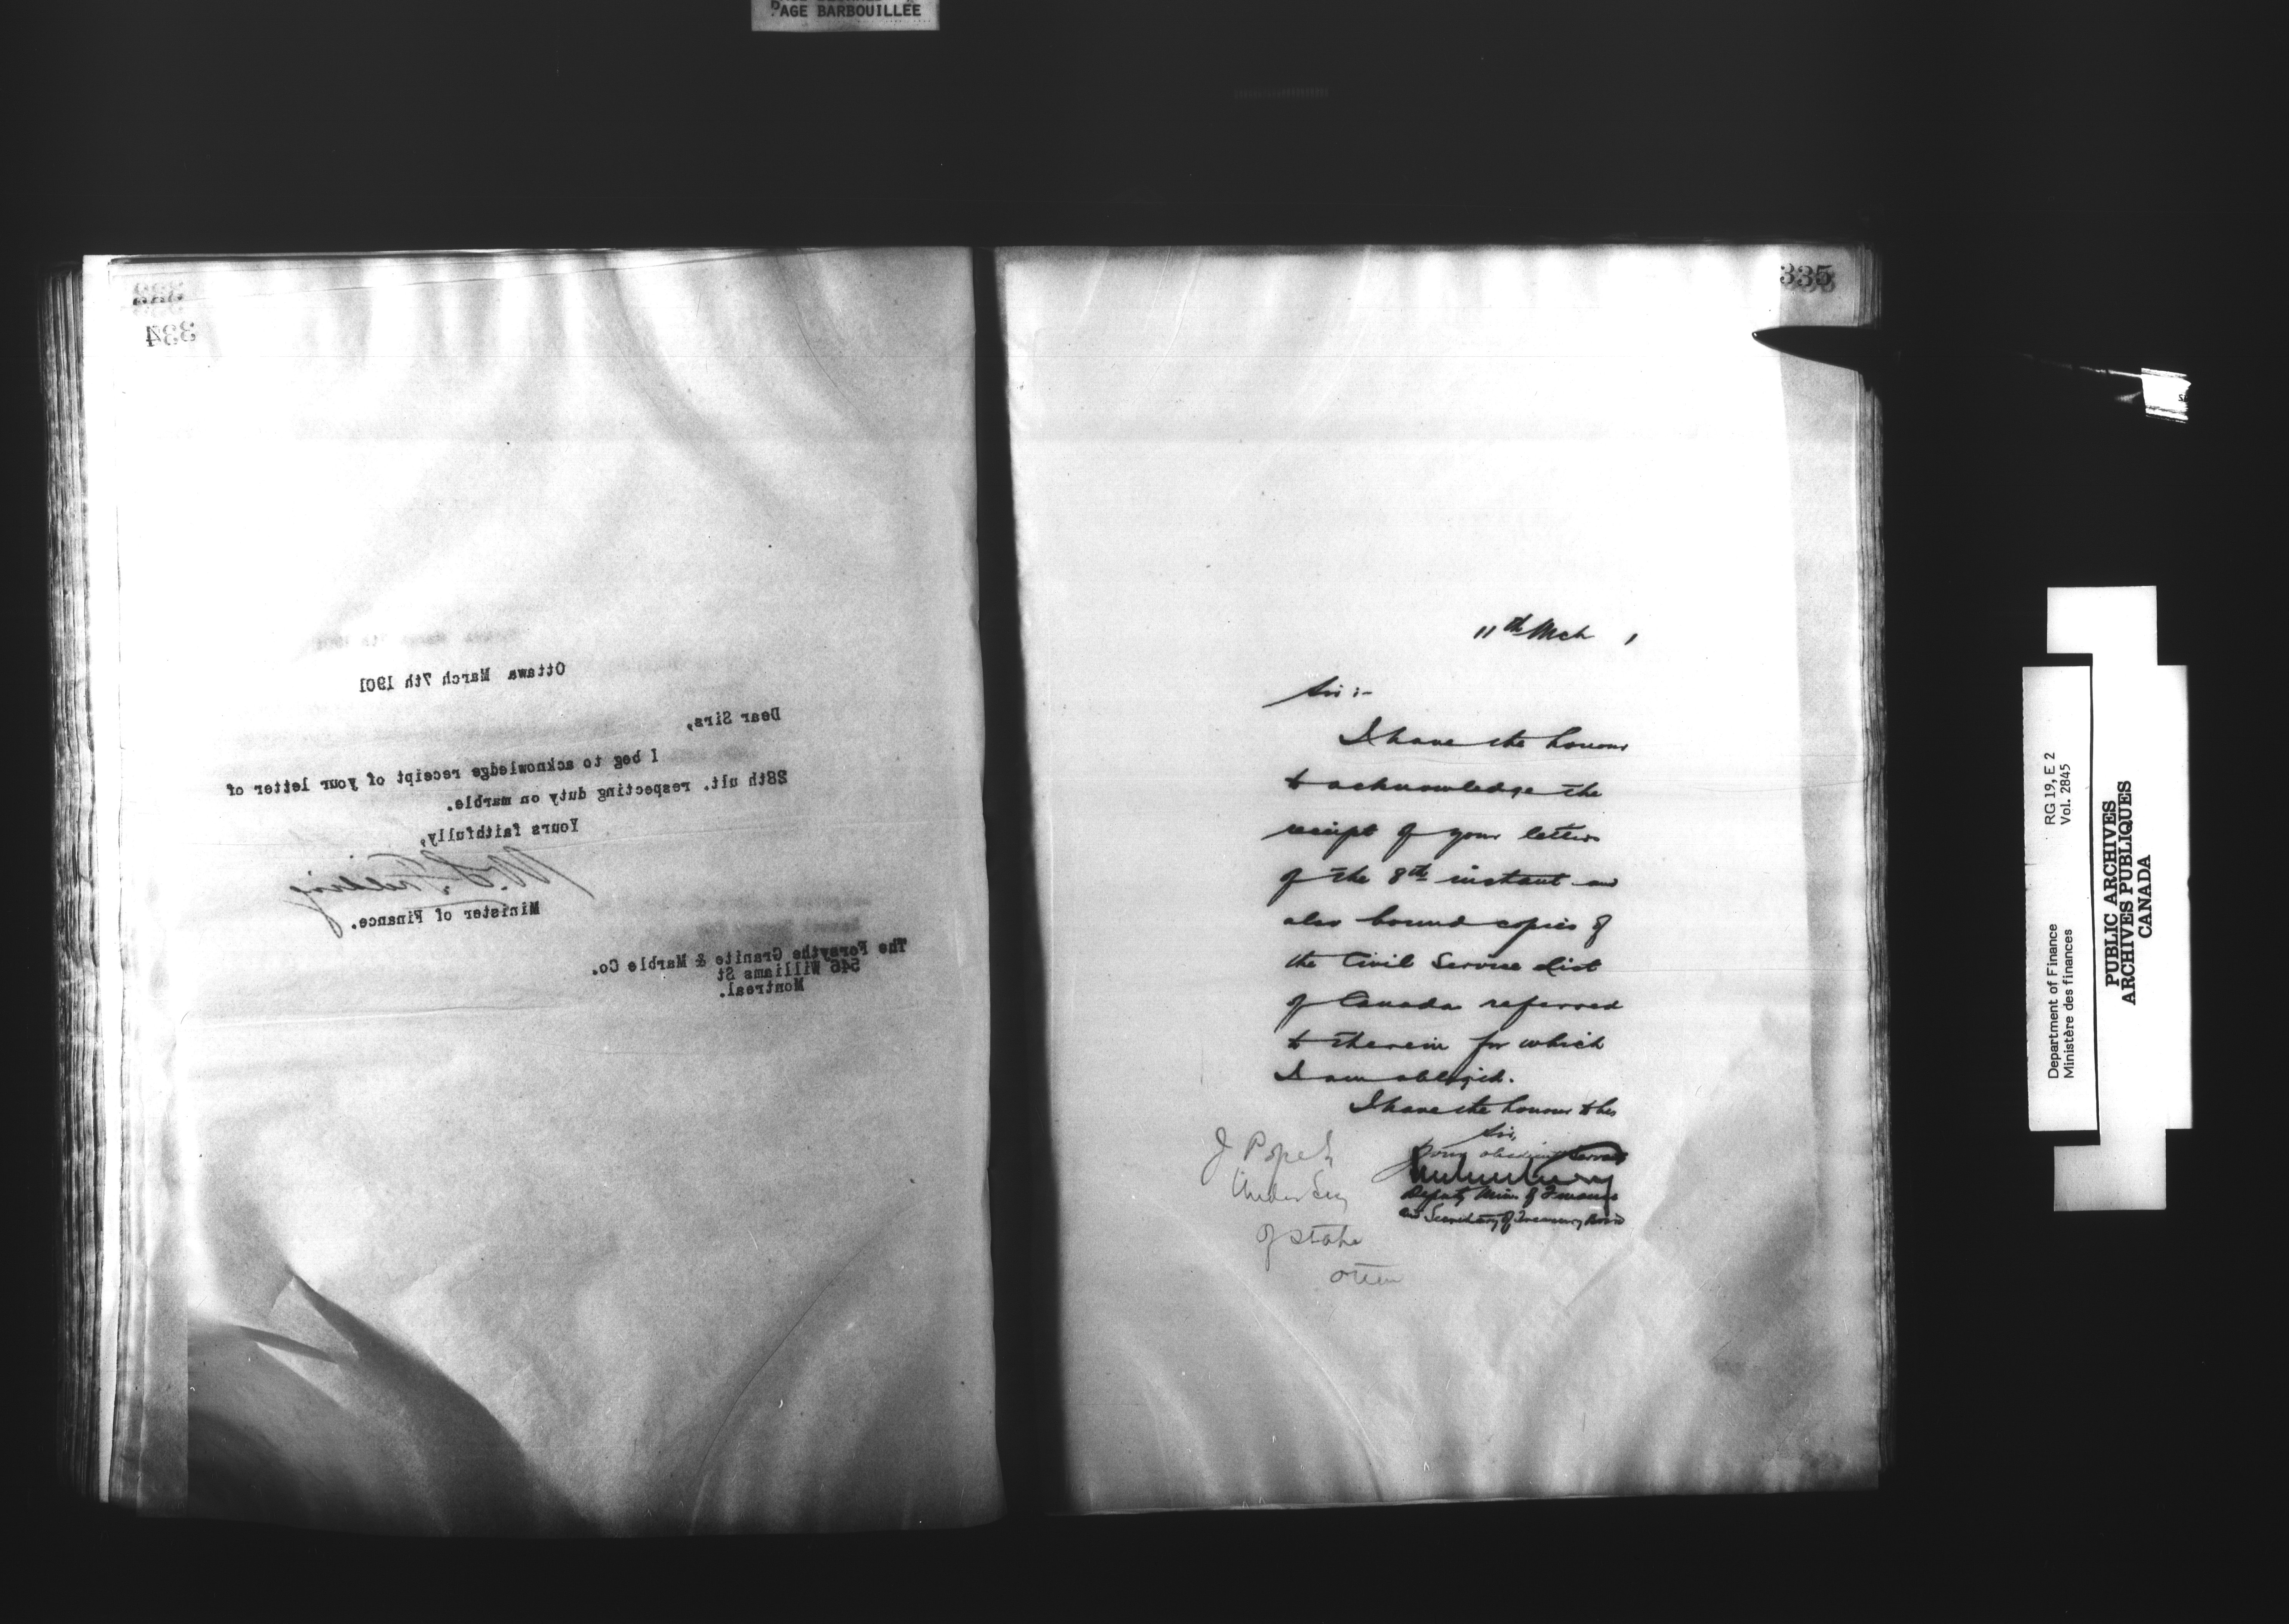 PAGE BARBOUILLÉE
334
Ottawa March 7th 1901
Dear Sirs,
I beg to acknowledge receipt of your letter of
28th ult. respecting duty on marble.
Yours faithfully,
W.S. Fielding
Minister of Finance.
The Forsythe Granite & Marble Co.
546 Williams St
Montreal.
335
11th Mch 1
Sir :-
I have the honour
to acknowledge the
receipt of your letter
of the 8th instant and
also bound copies of
the Civil Service List
of Canada referred
to therein for which
I am obliged.
I have the honour to be
Sir,
Your obedient Servant
Deputy Min. of Finance
and Secretary of Treasury Board
J Pope
Under Secy
of State
Department of Finance RG 19, E 2
Ministère des finances Vol. 2845
PUBLIC ARCHIVES
ARCHIVES PUBLIQUES
CANADA